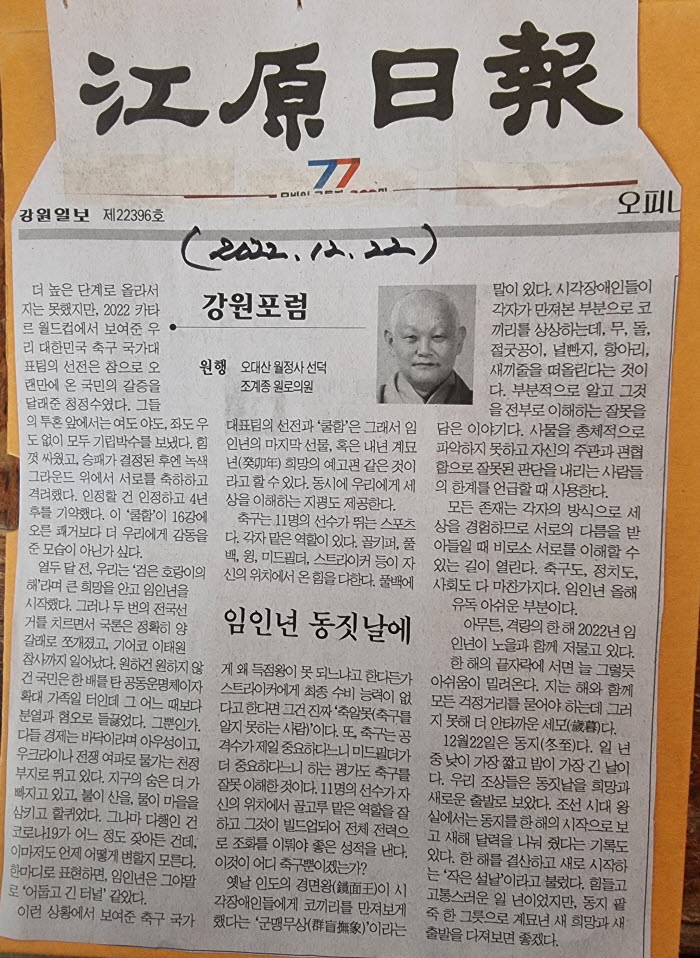 江原日報
77
강원일보 제22396호
오피니
(2022.12.22)
강원포럼
원행
오대산 월정사 선덕
조계종 원로의원
더 높은 단계로 올라서
지는 못했지만, 2022 카타
르 월드컵에서 보여준 우
리 대한민국 축구 국가대
표팀의 선전은 참으로 오
랜만에 온 국민의 갈증을
달래준 청정수였다. 그들
의 투혼 앞에서는 여도 야도, 좌도 우
도 없이 모두 기립박수를 보냈다. 힘
껏 싸웠고, 승패가 결정된 후엔 녹색
그라운드 위에서 서로를 축하하고
격려했다. 인정할 건 인정하고 4년
후를 기약했다. 이 ‘쿨함’이 16강에
오른 쾌거보다 더 우리에게 감동을
준 모습이 아닌가 싶다.
열두 달 전, 우리는 ‘검은 호랑이의
해’라며 큰 희망을 안고 임인년을
시작했다. 그러나 두 번의 전국선
거를 치르면서 국론은 정확히 양
갈래로 쪼개졌고, 기어코 이태원
참사까지 일어났다. 원하건 원하지 않
건 국민은 한 배를 탄 공동운명체이자
확대 가족일 터인데 그 어느 때보다
분열과 혐오로 들끓었다. 그뿐인가.
다들 경제는 바닥이라며 아우성이고,
우크라이나 전쟁 여파로 물가는 천정
부지로 뛰고 있다. 지구의 숨은 더 가
빠지고 있고, 불이 산을, 물이 마을을
삼키고 할퀴었다. 그나마 다행인 건
코로나19가 어느 정도 잦아든 건데,
이마저도 언제 어떻게 변할지 모른다.
한마디로 표현하면, 임인년은 그야말
로 ‘어둡고 긴 터널’ 같았다.
이런 상황에서 보여준 축구 국가
대표팀의 선전과 ‘쿨함’은 그래서 임
인년의 마지막 선물, 혹은 내년 계묘
년(癸卯年) 희망의 예고편 같은 것이
라고 할 수 있다. 동시에 우리에게 세
상을 이해하는 지평도 제공한다.
축구는 11명의 선수가 뛰는 스포츠
다. 각자 맡은 역할이 있다. 골키퍼, 풀
백, 윙, 미드필더, 스트라이커 등이 자
신의 위치에서 온 힘을 다한다. 풀백에
임인년 동짓날에
게 왜 득점왕이 못 되느냐고 한다든가
스트라이커에게 최종 수비 능력이 없
다고 한다면 그건 진짜 ‘축알못(축구를
알지 못하는 사람)’이다. 또, 축구는 공
격수가 제일 중요하다느니 미드필더가
더 중요하다느니 하는 평가도 축구를
잘못 이해한 것이다. 11명의 선수가 자
신의 위치에서 골고루 맡은 역할을 잘
하고 그것이 빌드업되어 전체 전력으
로 조화를 이뤄야 좋은 성적을 낸다.
이것이 어디 축구뿐이겠는가?
옛날 인도의 경면왕(鏡面王)이 시
각장애인들에게 코끼리를 만져보게
했다는 ‘군맹무상(群盲撫象)’이라는
말이 있다. 시각장애인들이
각자가 만져본 부분으로 코
끼리를 상상하는데, 무, 돌,
절굿공이, 널빤지, 항아리,
새끼줄을 떠올린다는 것이
다. 부분적으로 알고 그것
을 전부로 이해하는 잘못을
담은 이야기다. 사물을 총체적으로
파악하지 못하고 자신의 주관과 편협
함으로 잘못된 판단을 내리는 사람들
의 한계를 언급할 때 사용한다.
모든 존재는 각자의 방식으로 세
상을 경험하므로 서로의 다름을 받
아들일 때 비로소 서로를 이해할 수
있는 길이 열린다. 축구도, 정치도,
사회도 다 마찬가지다. 임인년 올해
유독 아쉬운 부분이다.
아무튼, 격랑의 한 해 2022년 임
인년이 노을과 함께 저물고 있다.
한 해의 끝자락에 서면 늘 그렇듯
아쉬움이 밀려온다. 지는 해와 함께
모든 걱정거리를 묻어야 하는데 그러
지 못해 더 안타까운 세모(歲暮)다.
12월22일은 동지(冬至)다. 일 년
중 낮이 가장 짧고 밤이 가장 긴 날이
다. 우리 조상들은 동짓날을 희망과
새로운 출발로 보았다. 조선 시대 왕
실에서는 동지를 한 해의 시작으로 보
고 새해 달력을 나눠 줬다는 기록도
있다. 한 해를 결산하고 새로 시작하
는 ‘작은 설날’이라고 불렀다. 힘들고
고통스러운 일 년이었지만, 동지 팥
죽 한 그릇으로 계묘년 새 희망과 새
출발을 다져보면 좋겠다.